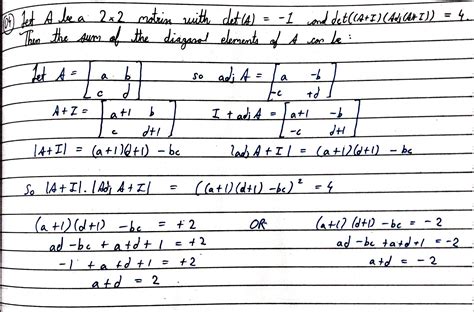 Q4 Let A be a 2×2 matrix with det(A) = -1 and det((A+I)(Adj(A)+I)) = 4.
Then the sum of the diagonal elements of A can be :
Let A = [a b; c d] so adj A = [a -b; -c +d]
A+I = [a+1 b; c d+1] I + adj A = [a+1 -b; -c d+1]
|A+I| = (a+1)(d+1) - bc |adj A + I| = (a+1)(d+1) - bc
So |A+I| . |Adj A+I| = ((a+1)(d+1) - bc)² = 4
(a+1)(d+1) - bc = +2 OR (a+1)(d+1) - bc = -2
ad - bc + a+d+1 = +2 ad - bc + a+d+1 = -2
-1 + a+d+1 = +2 a+d = -2
a+d = 2